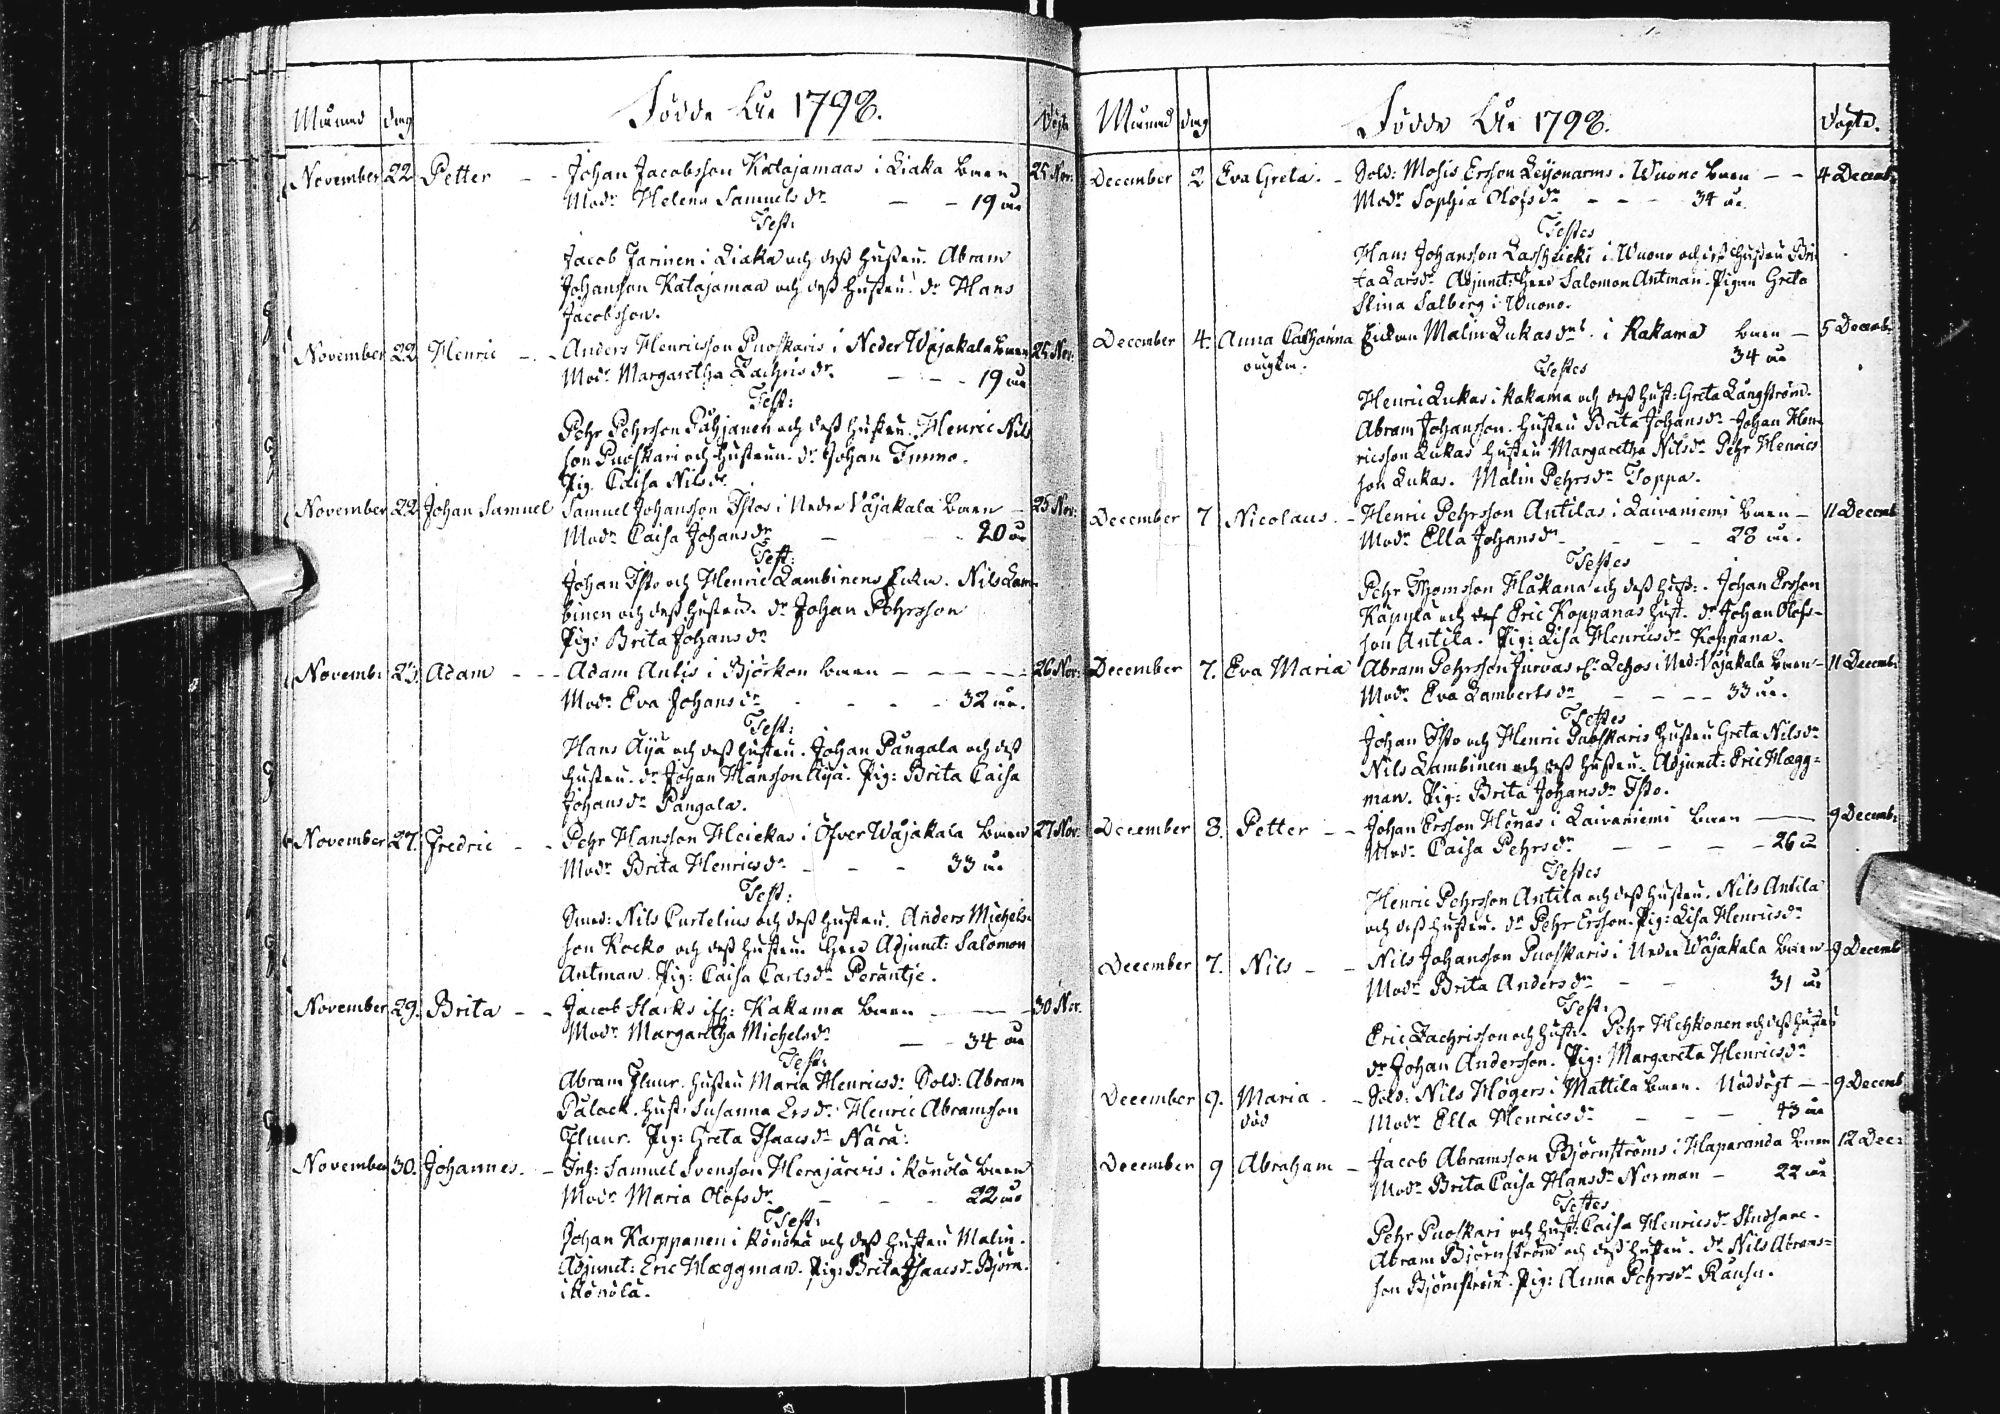 Månad dag Födde År 1798. Döpte
November 22 Petter - - Johan Jacobsson Katajamaas i Liaka barn 25 Nov:
Modr Helena Samuels dr - - 19 år
Test:
Jacob Jarinen i Liaka och dess hustru. Abram
Johansson Katajamaa och dess hustru. dr Hans
Jacobsson.
November 22 Henric - - Anders Henricsson Puoskaris i Neder Wojakala barn 25 Nov:
Modr Margaretha Zachris dr. - - - 19 år
Test:
Pehr Pehrsson Påhjanen och dess hustru. Henric Nils
son Puoskari och hustrun. dr Johan Immo.
Pig. Caisa Nils dr.
November 22 Johan Samuel Samuel Johansson Istos i Neder Wojakala barn - 25 Nov:
Modr Caisa Johans dr - - 20 år
Test:
Johan Isto och Henric Lambinens Enka. Nils Lam-
binen och dess hustru. dr Johan Pehrsson
Pig: Brita Johans dr
Novemb: 23 Adam - - - Adam Antis i Björkön barn - - - - - 26 Nov:
Modr Eva Johans dr - - - - 32 år.
Test:
Hans Äijä och dess hustru. Johan Pångala och dess
hustru. dr Johan Hansson Äijä. Pig: Brita Caisa
Johans dr Pångala.
November 27. Fredric - - Pehr Hansson Heickas i Öfver Wojakala barn 27 Nov:
Modr Brita Henrics dr - - - 33 år
Test:
Smed: Nils Curtelius och dess hustru. Anders Michels-
son Kocko och dess hustru. Herr Adjunct: Salomon
Antman. Pig: Caisa Carls dr Peräntje.
November 29. Brita - - Jacob Harks Kakama barn - - 30 Nov.
Modr Margaretha Michels dr - - 34 år
Test:
Abram Fluur. hustru Maria Henrics dr: Sold: Abram
Palack. hust: Susanna Ers dr. Henric Abramsson
Fluur. Pig: Greta Isaacs dr Nära:
November 30. Johannes. - Inh: Samuel Svensson Herajärvis i Könölä barn
Modr Maria Olofs dr - - - 22 år
Test:
Johan Karppanen i Könölä och dess hustru Malin.
Adjunct: Eric Hæggman. Pig: Brita Isaacs dr Björn.
i Könölä.
Månad dag Födde År 1798. Döpte.
December 2 Eva Greta. - Sold: Mosis Ersson Leijonarms i Wuono barn - - 4 Decemb:
Modr Sophia Olofs dr - - - 34 år.
Testes
Hans Johansson i Wuono och dess hustru Bri-
ta Lars dr. Adjunct: Herr Salomon Antman. Pigan Greta
Stina Salberg i Wuono.
December 4. Anna Catharina Enkan Malin Lukas drs. i Kakama barn - 5 Decemb:
oägta. 34 år
Testes
Henric Lukas i Kakama och dess hust: Greta Långström.
Abram Johansson. hustru Brita Johans dr Johan Hen-
ricsson Lukas hustru Margaretha Nils dr Pehr Henrics
son Lukas. Malin Pehrs dr Toppa.
December 7 Nicolaus. - Henric Pehrsson Antilas i Laivaniemi barn - 11 Decemb
Modr Ella Johans dr - - - - 28 år.
Testes
Pehr Thomsson Hakana och dess hust:. Johan Ersson
Käpylä och Eric Koppanas hust. dr Johan Olofs-
son Antila. Pig: Lisa Henrics dr Koppana.
December 7. Eva Maria Abram Pehrsson Jurvas Lehos i Ned: Wojakala barn - 11 Decemb:
Modr Eva Lamberts dr - - - - 33 år.
Testes
Johan Isto och Henric Puoskaris hustru Greta Nils dr
Nils Lambinen och dess hustru. Adjunct: Eric Hægg-
man. Pig: Brita Johans dr Isto.
December 8. Petter - - Johan Ersson Henås i Laivaniemi barn - 9 Decemb:
Modr. Caisa Pehrs dr - - - - 26 år
Testes
Henric Pehrsson Antila och dess hustru. Nils Antila
och dess hustru. dr Pehr Ersson. Pig: Lisa Henrics dr
December 7. Nils - - Nils Johansson Puoskaris i Neder Wojakala barn - 9 Decemb
Modr Brita Anders dr - - 31 år
Test:
Eric Zachrisson och hustr. Pehr Hehkonen och dess hustru
dr Johan Andersson. Pig: Margareta Henrics dr
December 9. Maria - Sold: Nils Högers i Mattila barn. Nöddöpt - - 9 Decemb
död Modr Ella Henrics dr - - - 43 år
December 9 Abraham - Jacob Abramsson Björnströms i Haparanda barn 12 Dec:
Modr Brita Caisa Hans dr Norman - 22 år
Testes
Pehr Puoskari och hust: Caisa Henrics dr Studsare.
Abram Björnström och dess hustru. dr Nils Abrams-
son Björnström. Pig: Anna Pehrs dr Rausu.